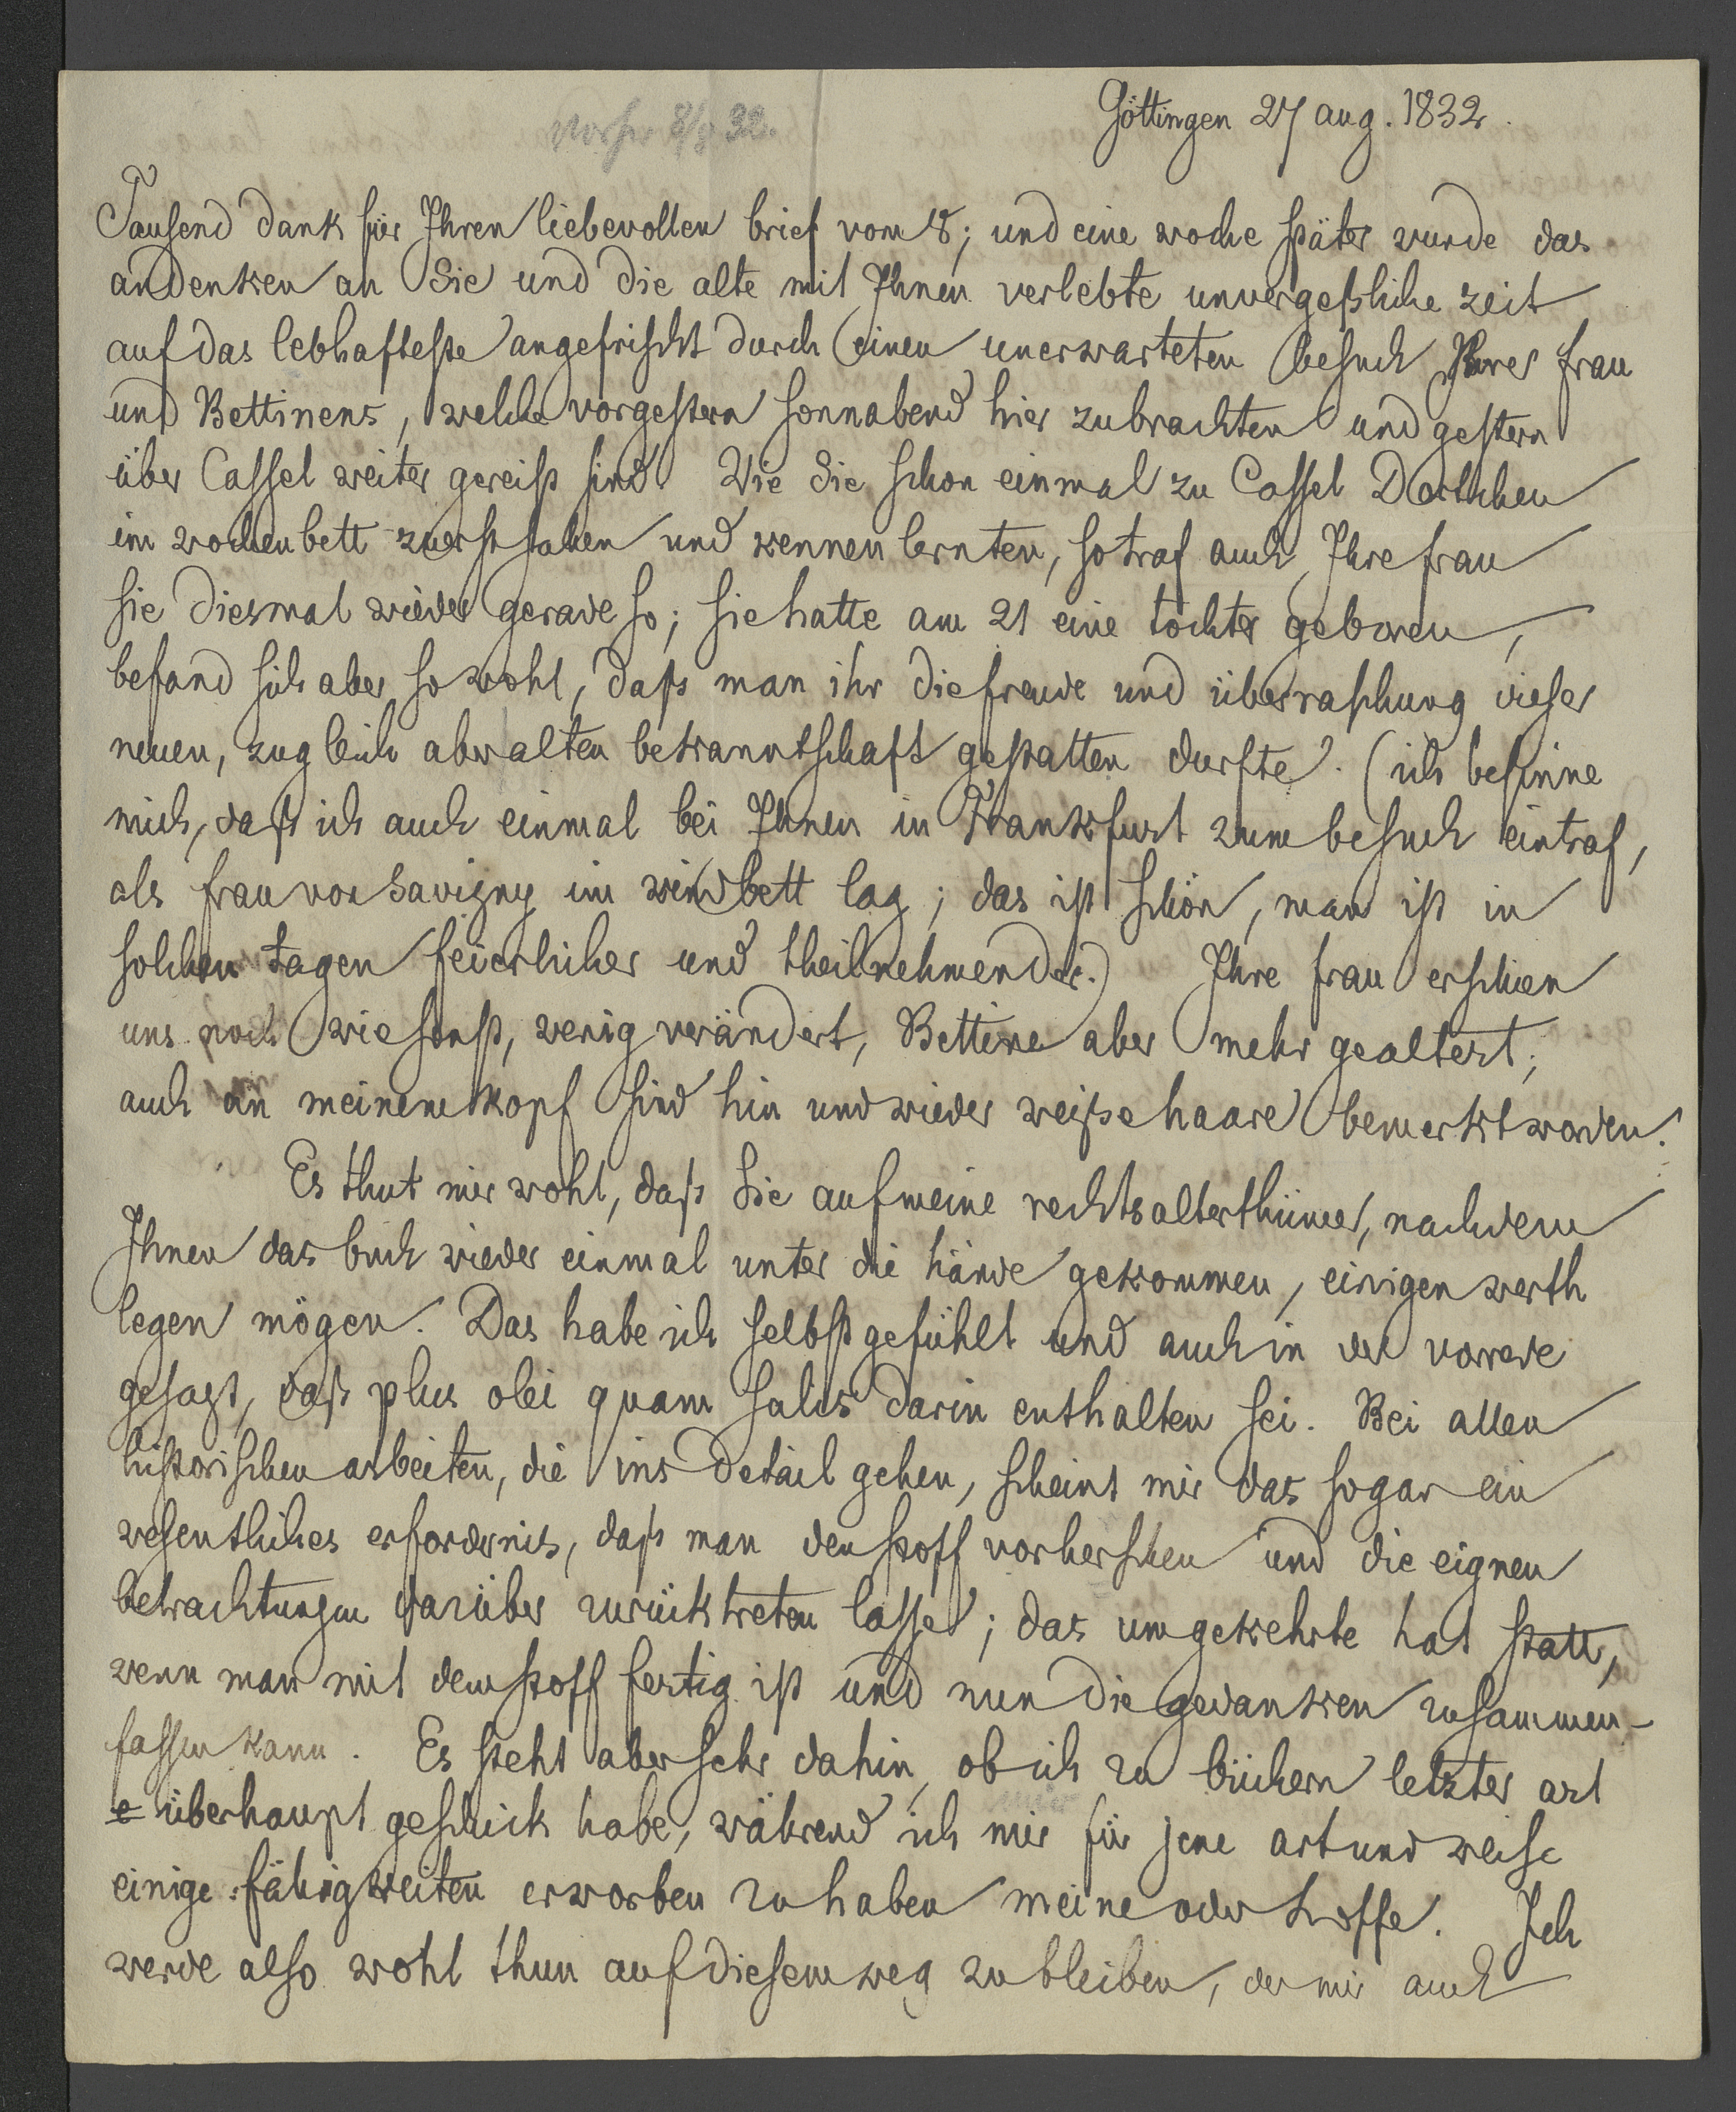 Göttingen 27 aug. 1832.
Tausend dank für Ihren liebevollen brief vom 8; und eine woche später wurde das
andenken an Sie und die alte mit Ihnen verlebte unvergeßliche zeit
auf das lebhafteste angefrischt durch einen unerwarteten besuch Ihrer frau
und Bettinens, welche vorgestern sonnabend hier zubrachten und gestern
über Cassel weiter gereist sind. Wie Sie schon einmal zu Cassel Dortchen
im wochenbett zuerst sahen und kennen lernten, so traf auch Ihre frau
sie diesmal wieder gerade so; sie hatte am 21 eine tochter geboren,
befand sich aber so wohl, daß man ihr die freude und überraschung dieser
neuen, zugleich aber alten bekanntschaft gestatten durfte. (ich besinne
mich, daß ich auch einmal bei Ihnen in Frankfurt zum besuch eintraf,
als frau von Savigny im kindbett lag; das ist schön, man ist in
solchen tagen feierlicher und theilnehmender.) Ihre frau erschien
uns noch wie sonst, wenig verändert, Bettine aber mehr gealtert;
auch an meinem kopf sind hin und wieder weiße haare bemerkt worden.
Es thut mir wohl, daß Sie auf meine rechtsalterthümer, nachdem
Ihnen das buch wieder einmal unter die hände gekommen, einigen werth
legen mögen. Das habe ich selbst gefühlt und auch in der vorrede
gesagt, daß plus olei quam salis darin enthalten sei. Bei allen
historischen arbeiten, die ins detail gehen, scheint mir das sogar ein
wesentliches erfordernis, daß man den stoff vorherschen und die eignen
betrachtungen darüber zurücktreten lasse; das umgekehrte hat statt,
wenn man mit dem stoff fertig ist und nun die gedanken zusammen-
fassen kann. Es steht aber sehr dahin, ob ich zu büchern letzter art
überhaupt geschick habe, während ich mir für jene art und weise
einige fähigkeiten erworben zu haben meine oder hoffe. Ich
werde also wohl thun auf diesem weg zu bleiben, der mir auch